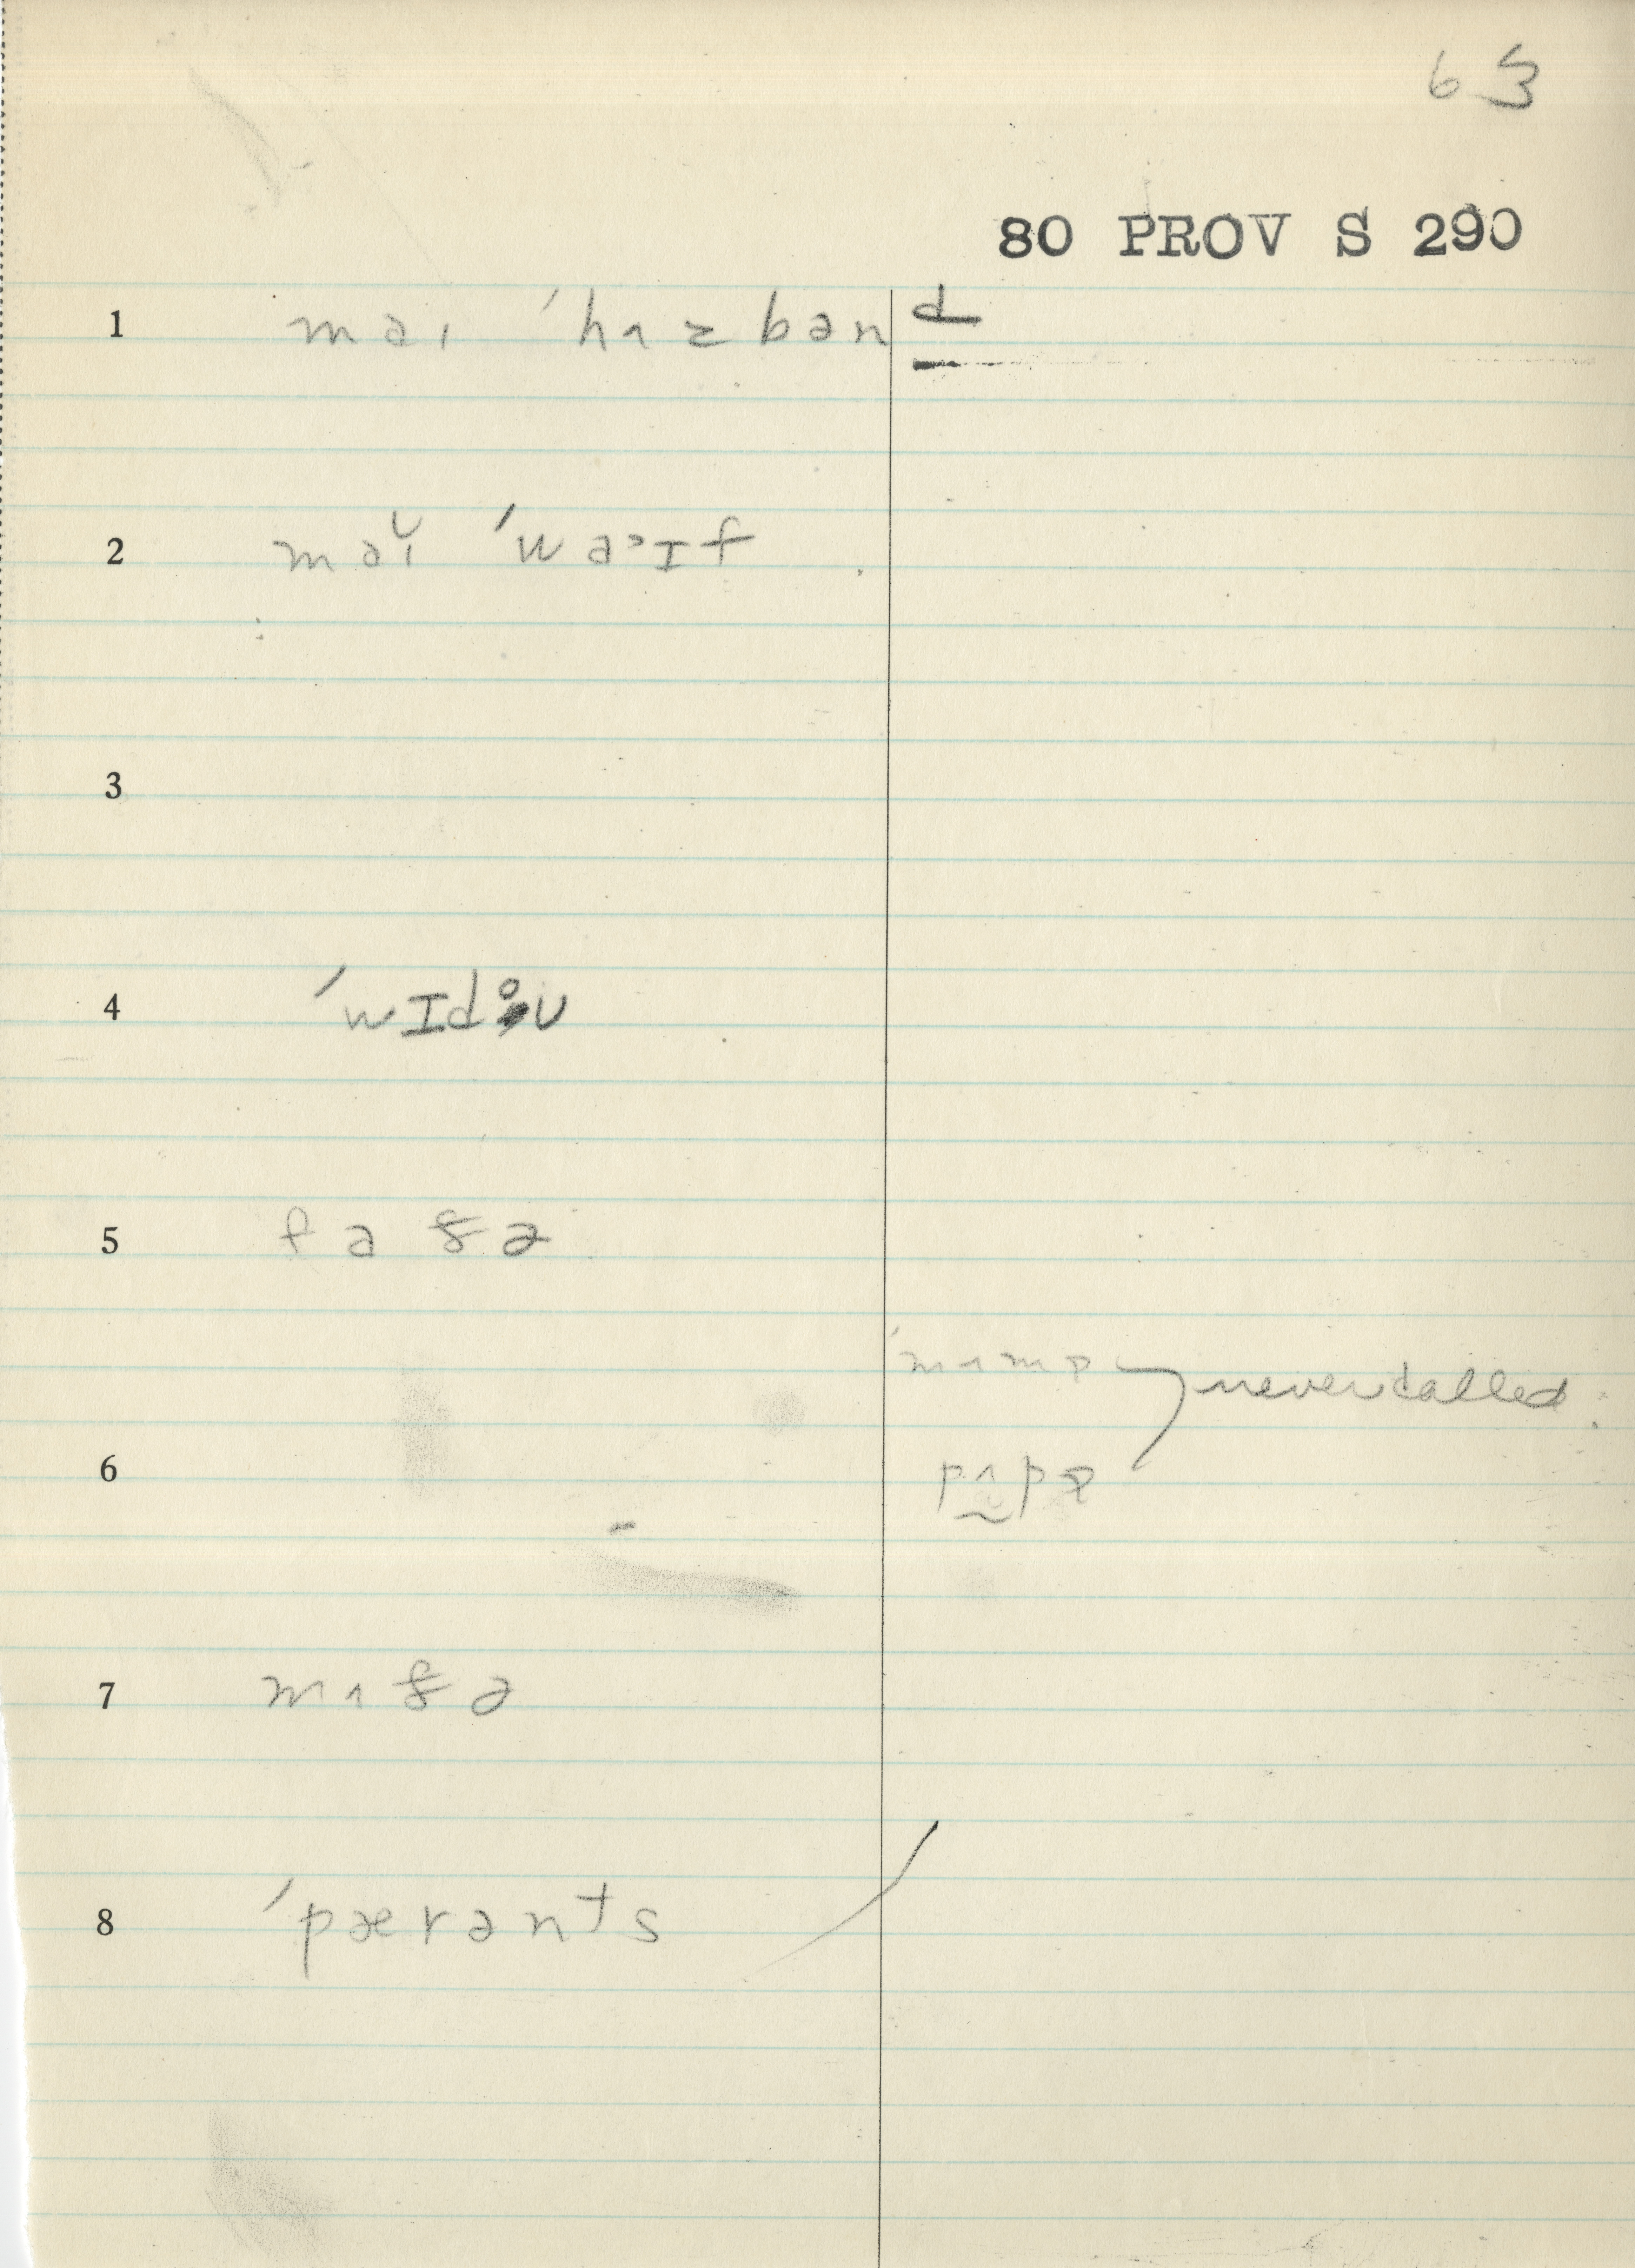 63
80 PROV S 290
1 maɪ ˈhʌzbənd
2 maɪ̆ ˈwa˃ɪf
3
4 ˈwɪdoʊ
5 faðə
ˈmʌmɒ } never called.
6 pʌpɒ
7 mʌðə
8 ˈpærənts